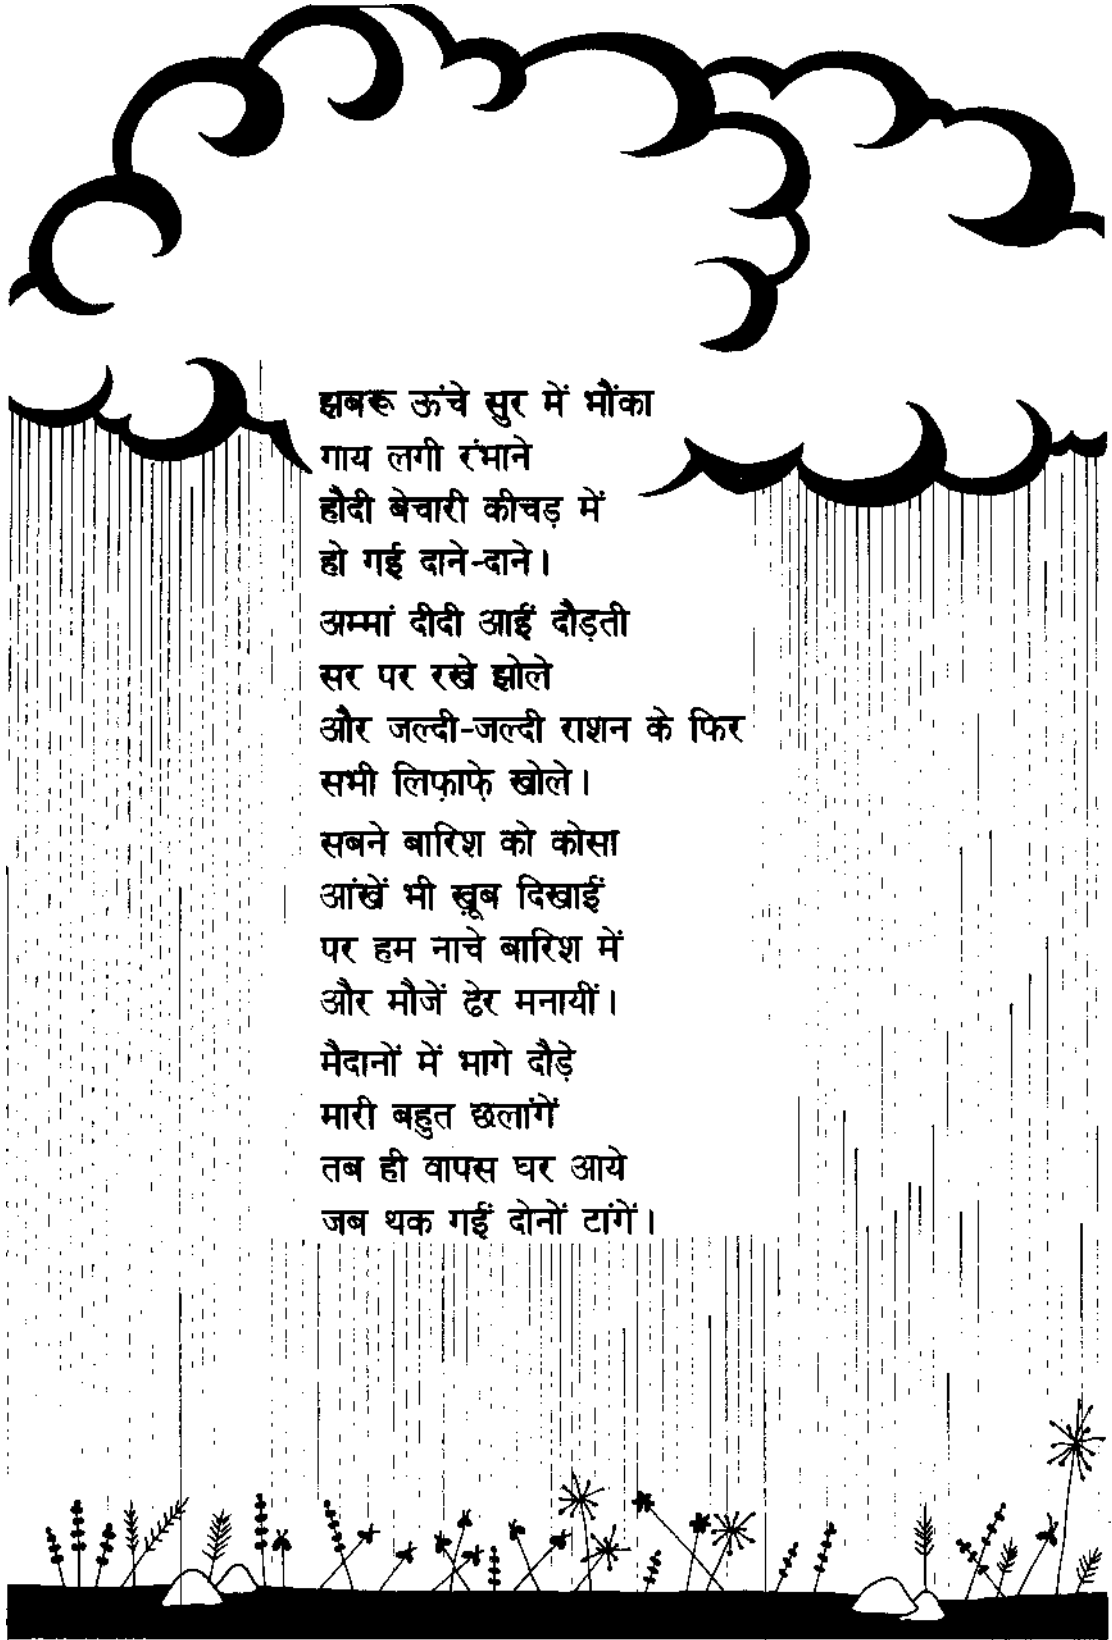 झबरू ऊंचे सुर में भौंका
गाय लगी रंभाने
हौदी बेचारी कीचड़ में
हो गई दाने-दाने।
अम्मां दीदी आईं दौड़ती
सर पर रखे झोले
और जल्दी-जल्दी राशन के फिर
सभी लिफ़ाफ़े खोले।
सबने बारिश को कोसा
आंखें भी ख़ूब दिखाईं
पर हम नाचे बारिश में
और मौजें ढेर मनायीं।
मैदानों में भागे दौड़े
मारी बहुत छलांगें
तब ही वापस घर आये
जब थक गईं दोनों टांगें।